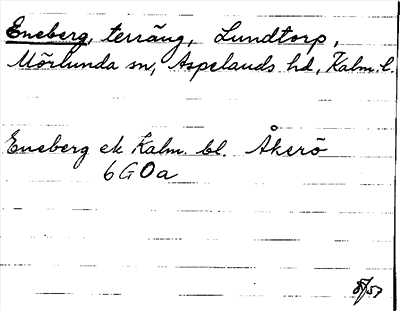 Eneberg, terräng, Lundtorp,
Mörlunda sn, Aspelands hd, Kalm. l.
Eneberg ek Kalm. bl. Åkerö
6G0a